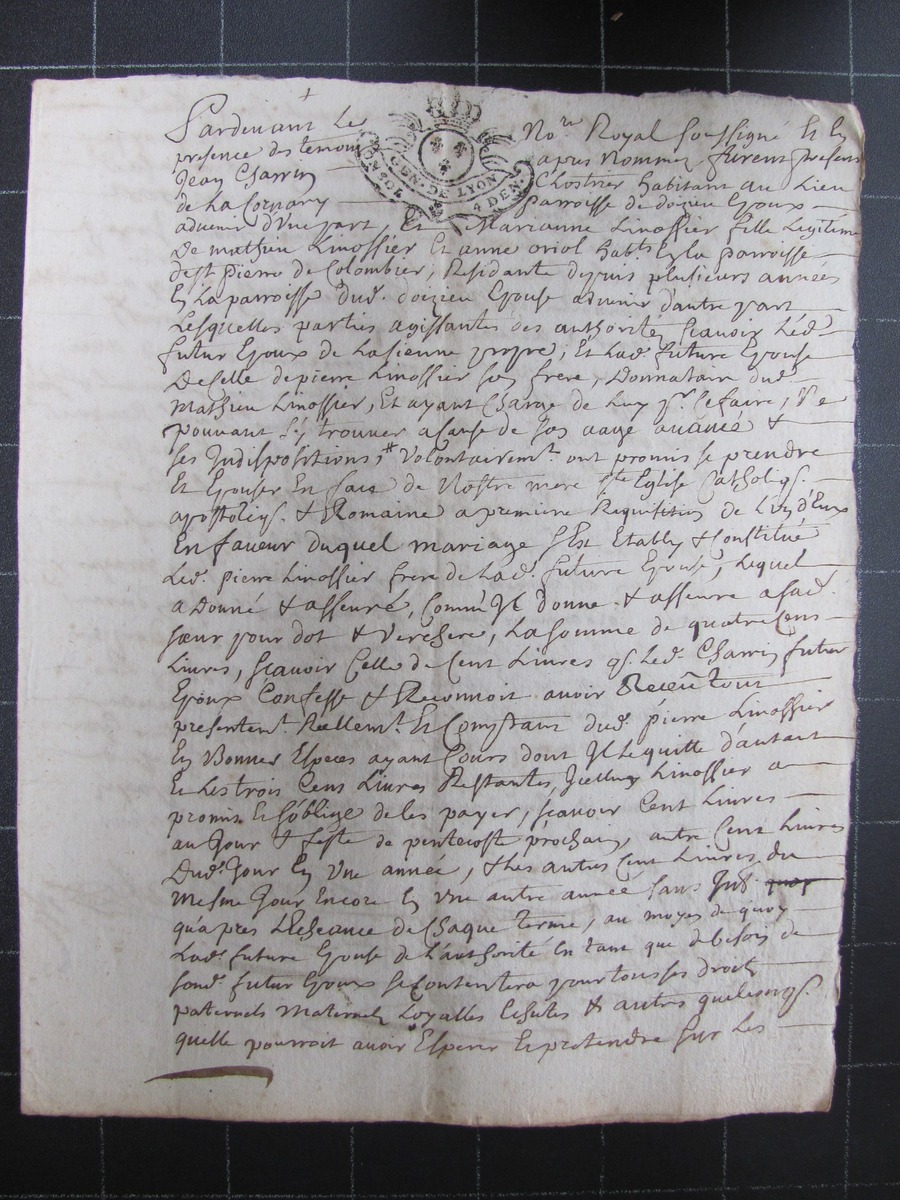 Pardevant Le No.re Royal soussigné Et En
presence des temoins apres Nommez furent presens
Jean Charrin Chostrier habitant au Lieu
de La Cornary parroisse de doizieu Epoux
advenir d'Une part, Et Marianne Linossier fille Legitime
De mathieu Linossier Et anne oriol hab.ts En la parroisse
de st pierre de Colombier, Residante depuis plusieurs années
En La parroisse dud. doizieu Epouse advenir d'autre part
Lesquelles parties agissantes des authorités scavoir Led.
futur Epoux de La sienne propre, Et Lad. future Epouse
De Celle de pierre Linossier son frere, Donnataire dud.
Mathieu Linossier, Et ayant Charge de Luy p.r Ce faire, Ne
pouvant s'y trouver a Cause de son aage avancé &
ses Indispositions, # Volontairem.t ont promis se prendre
Et Epouser En face de Nostre mere ste Eglise Catholiq.
apostoliq. & Romaine a premiere Requisition de L'un d'Eux
En faveur duquel mariage s'Est Etably & Constitué
Led. pierre Linossier frere de Lad. future Epouse, Lequel
a Donné & asseuré, Comm'Il donne & asseure a sad.
sœur pour dot & Verchere, La somme de quatre Cens
Livres, scavoir Celle de Cent Livres q. Led. Charrin futur
Epoux Confesse & Reconnoit avoir Receu tout
presentem.t Reellem.t Et Comptans dud. pierre Linossier
En Bonnes Especes ayant Cours dont Il Le quitte d'autant
Et Les trois Cens Livres Restantes, Icelluy Linossier a
promis Et s'oblige de les payer, scavoir Cent Livres
au Jour & feste de pentecoste prochain, autre Cent Livres
Dud. Jour En Une année, & Les autres Cent Livres du
mesme Jour Encore En Une autre année sans Int.
qu'apres L'Escance de Chaque terme, au moyen de quoy
Lad. future Epouse de L'authorité En tant que de besoin de
sond. futur Epoux se Contentera pour tous ses droits
paternels Maternels Loyalles Eschutes & autres quelconq.
quelle pourroit avoir Esperer Et pretendre sur Les
GEN. DE LYON
4 DEN.